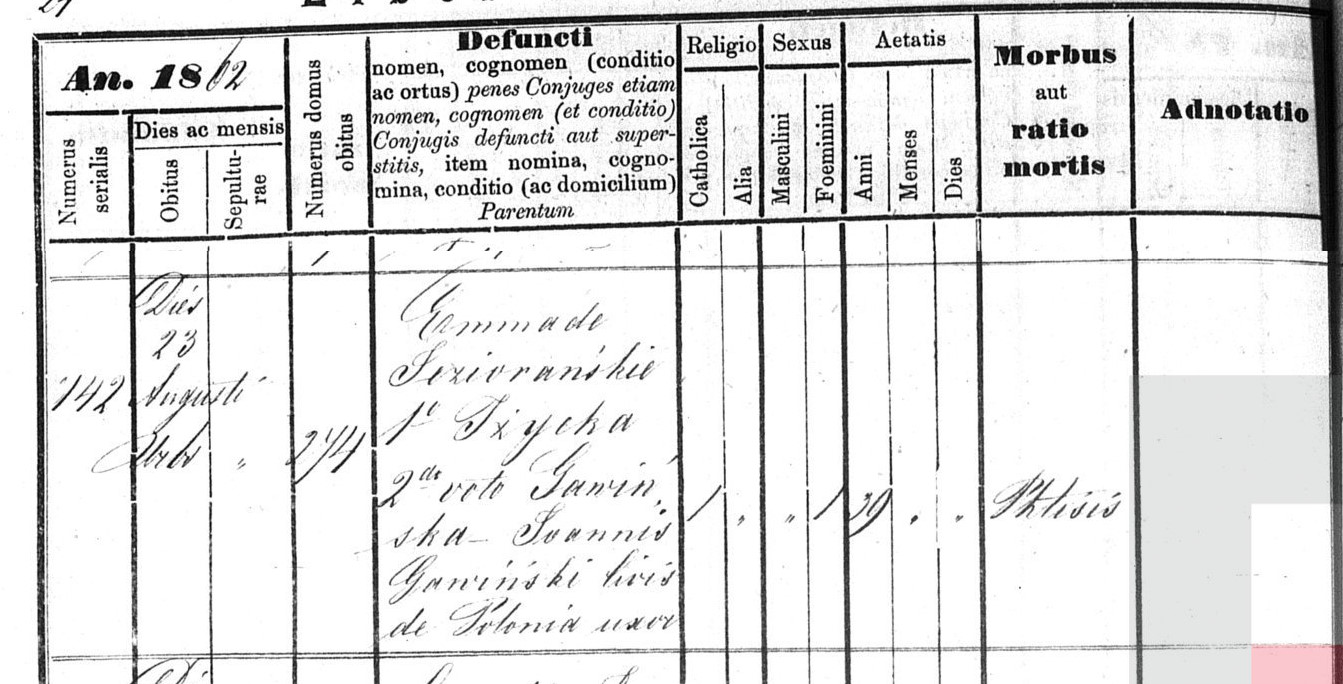 An. 1862
Numerus serialis
Dies ac mensis
Obitus
Sepultu-
rae
Numerus domus
obitus
Defuncti
nomen, cognomen (conditio
ac ortus) penes Conjuges etiam
nomen, cognomen (et conditio)
Conjugis defuncti aut super-
stitis, item nomina, cogno-
mina, conditio (ac domicilium)
Parentum
Religio
Catholica
Alia
Sexus
Masculini
Foeminini
Aetatis
Anni
Menses
Dies
Morbus
aut
ratio
mortis
Adnotatio
Dies
23
142 Augusti
" 274
Emma de
Jeziorańskie
1º Iżycka
2do voto Gawiń
ska Joannis
Gawiński civis
de Polonia uxor
1 " " 1 39 " " Phtisis